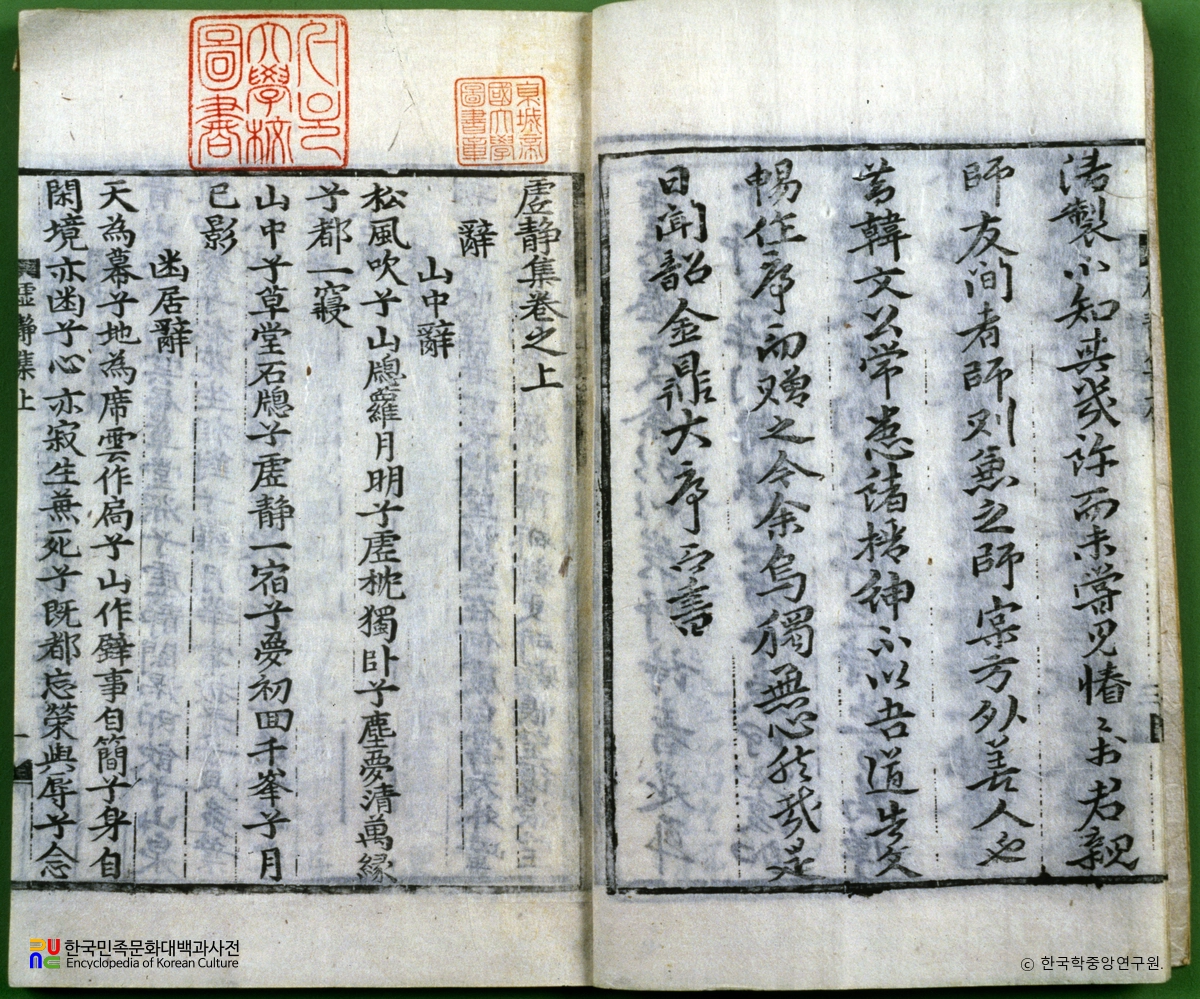 法製小知其幾許而未嘗見惟〻於君親
師友間者師則魚之師宲方外善人也
昔韓文公常惹諸搢紳不以吾道告文
暢住序而贈之今余烏獨無心於哉是
日聞韶金鼎大序已書
虛靜集卷之上
辭
山中辭
松風吹兮山牎蘿月明兮虛枕獨卧兮塵夢清萬緣
兮都一寢
山中兮草堂石牎兮虛靜一宿兮夢初回千峯兮月
已影
幽居辭
天為幕兮地為席雲作局兮山作壁事自簡兮身自
閑境亦幽兮心亦寂生無死兮既都忘榮與辱兮念
虛靜集上
一
大學校
圖書
京城帝
國大學
圖書章
한국민족문화대백과사전
Encyclopedia of Korean Culture
© 한국학중앙연구원.